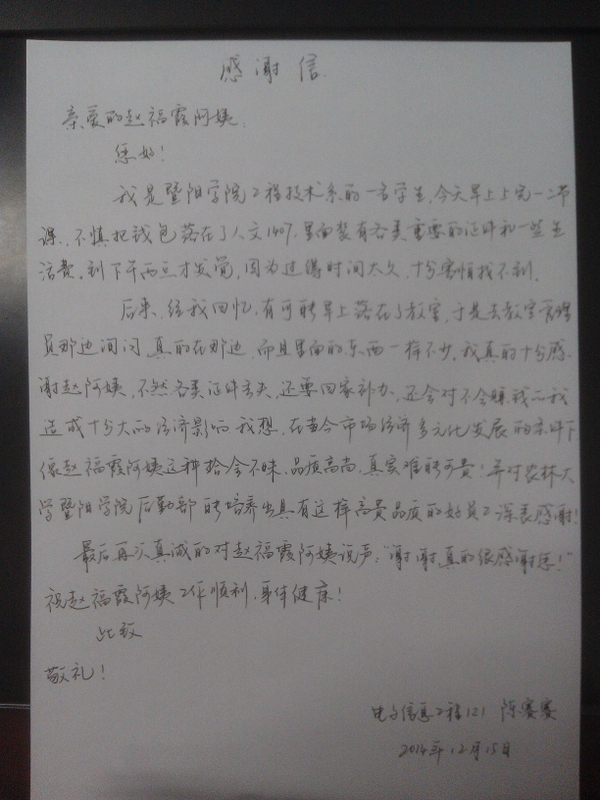 感谢信
亲爱的赵福霞阿姨：
您好！
我是暨阳学院工程技术系的一名学生，今天早上上完一二节
课，不慎把钱包落在了人文1407，里面装有各类重要的证件和一些生
活费，到下午两点才发觉，因为过得时间太久，十分害怕找不到。
后来，经我回忆，有可能早上落在了教室，于是去教室管理
员那边询问，真的在那边，而且里面的东西一样不少，我真的十分感
谢赵阿姨，不然各类证件丢失，还要回家补办，还会对不会赚钱的我
造成十分大的经济影响。我想，在当今市场经济多元化发展的条件下，
像赵福霞阿姨这种拾金不昧，品质高尚，真实难能可贵！并对农林大
学暨阳学院后勤部能培养出具有这样高贵品质的好员工深表感谢！
最后再次真诚的对赵福霞阿姨说声：“谢谢，真的很感谢您！”
祝赵福霞阿姨工作顺利，身体健康！
此致
敬礼！
电子信息工程121 陈赛赛
2014年12月15日